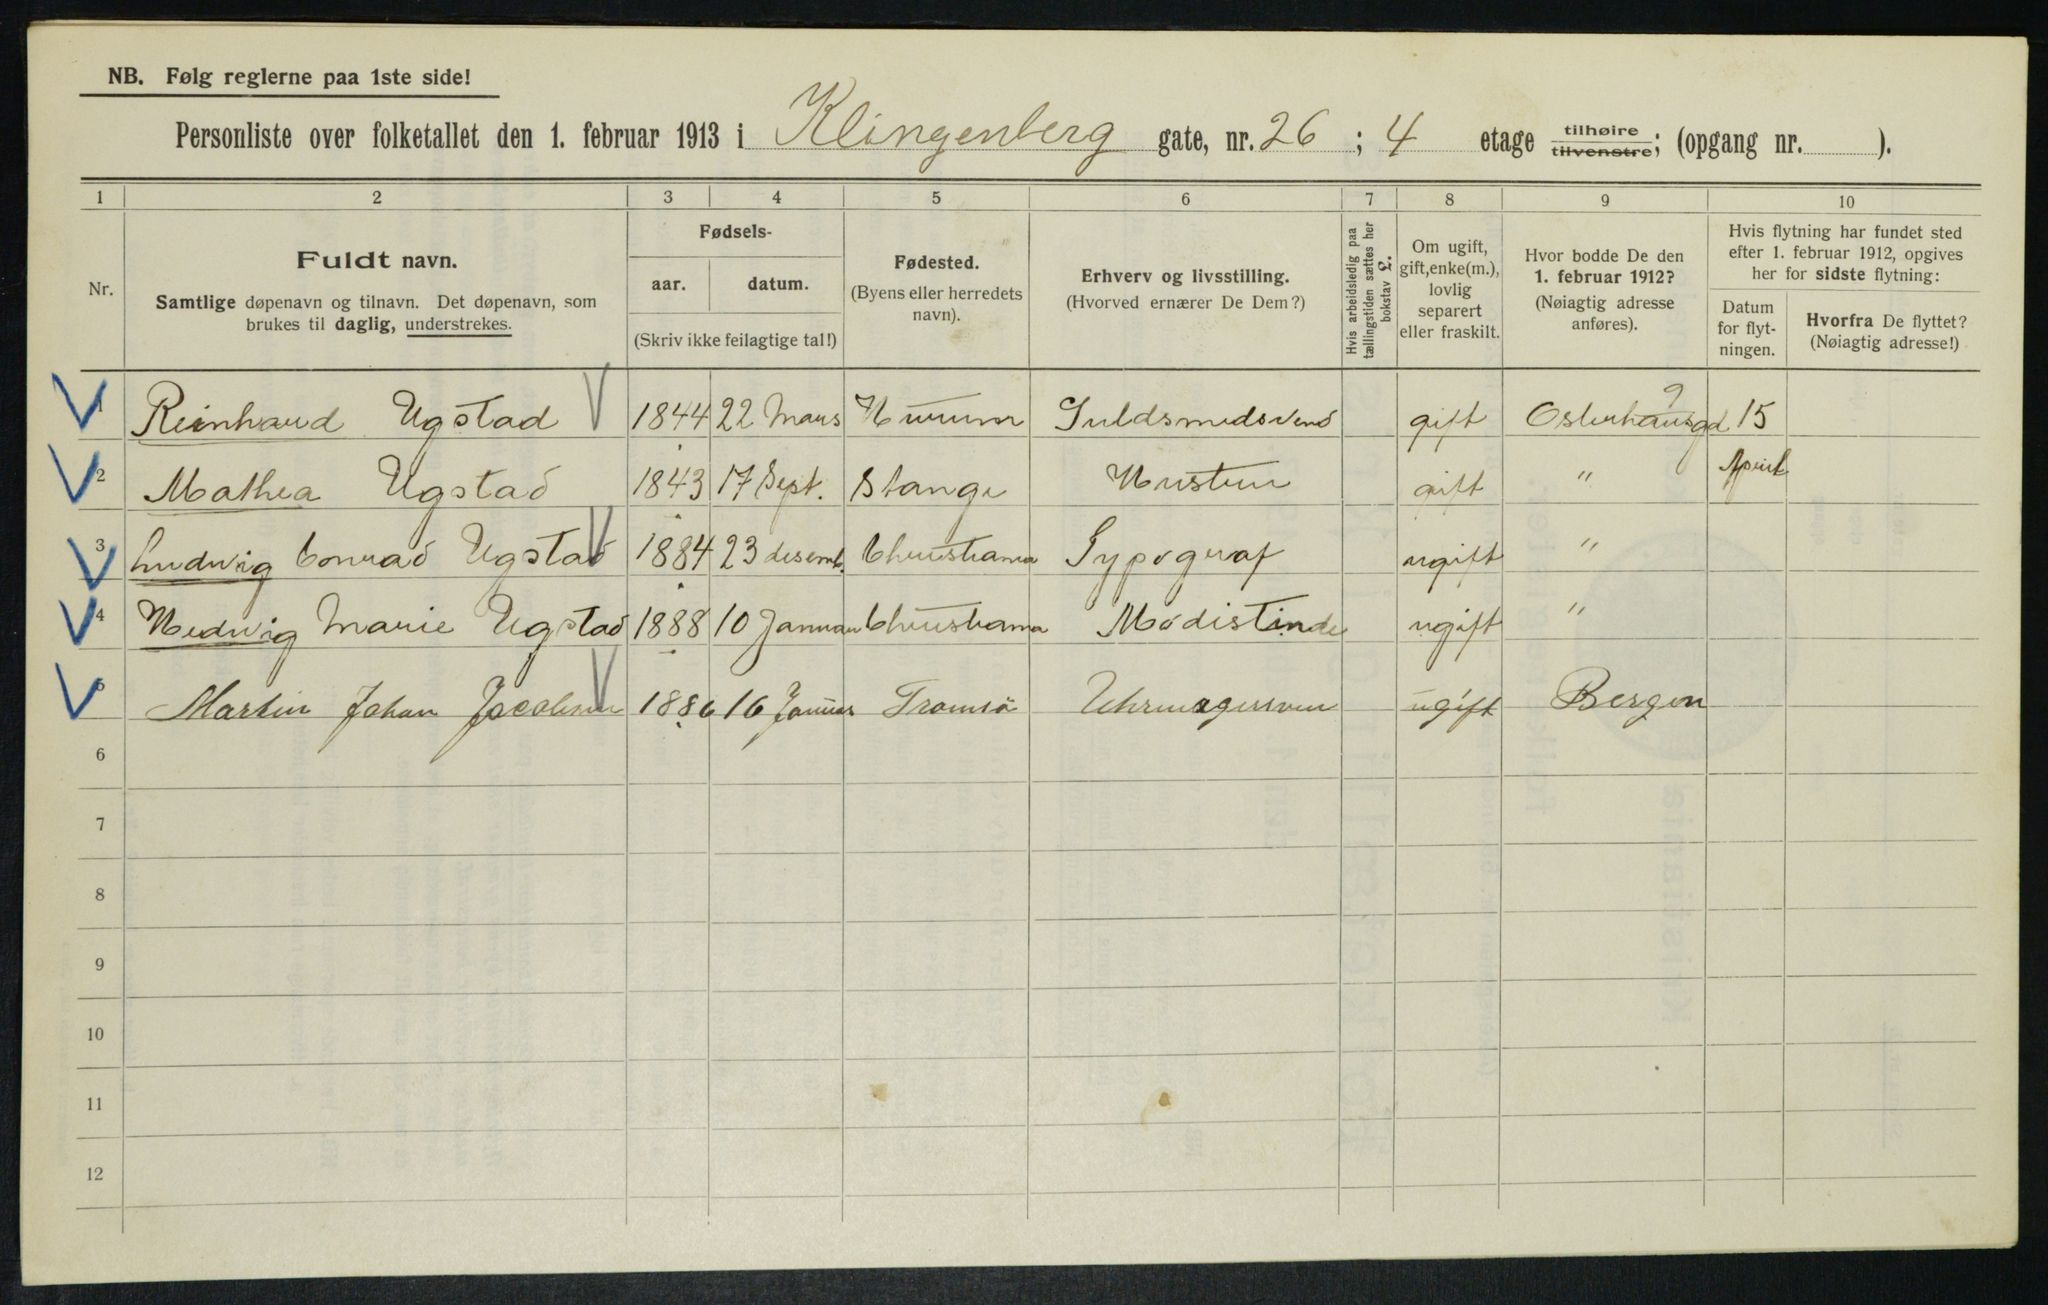 NB. Følg reglerne paa 1ste side!
Personliste over folketallet den 1. februar 1913 i Klingenberg gate, nr. 26 ; 4 etage tilhøire tilvenstre; (opgang nr. ).
1 2 3 4 5 6 7 8 9 10
Nr.
Fuldt navn.
Samtlige døpenavn og tilnavn. Det døpenavn, som
brukes til daglig, understrekes.
Fødsels-
aar. datum.
(Skriv ikke feilagtige tal!)
Fødested.
(Byens eller herredets
navn).
Erhverv og livsstilling.
(Hvorved ernærer De Dem?)
Hvis arbeidsledig paa
tællingstiden sættes her
bokstav L.
Om ugift,
gift, enke(m.),
lovlig
separert
eller fraskilt.
Hvor bodde De den
1. februar 1912?
(Nøiagtig adresse
anføres).
Hvis flytning har fundet sted
efter 1. februar 1912, opgives
her for sidste flytning:
Datum
for flyt-
ningen.
Hvorfra De flyttet?
(Nøiagtig adresse!)
1 Reinhard Ugstad 1844 22 Mars Hurum Guldsmedsvend gift Osterhausgd 9 15
2 Mathea Ugstad 1843 17 Sept. Stange Hustru gift " April
3 Ludvig Conrad Ugstad 1884 23 desemb. Christiania Typograf ugift "
4 Hedvig Marie Ugstad 1888 10 Januar Christiania Modistinde ugift "
5 Martin Johan Jacobsen 1886 16 Januar Tromsö ugift Bergen
6
7
8
9
10
11
12